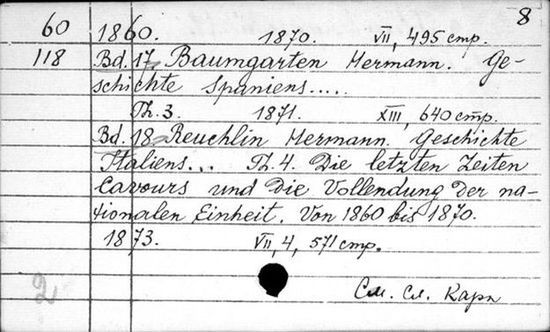 8
60 1860. 1870. VII, 495 стр.
118 Bd. 17. Baumgarten Hermann. Ge-
schichte Spaniens.....
Th. 3. 1871. XIII, 640 стр.
Bd. 18 Reuchlin Hermann. Geschichte
Italiens... Th. 4. Die letzten Zeiten
Cavours und die Vollendung der na-
tionalen Einheit. Von 1860 bis 1870.
1873. VII, 4, 571 стр.
2
См. сл. карт